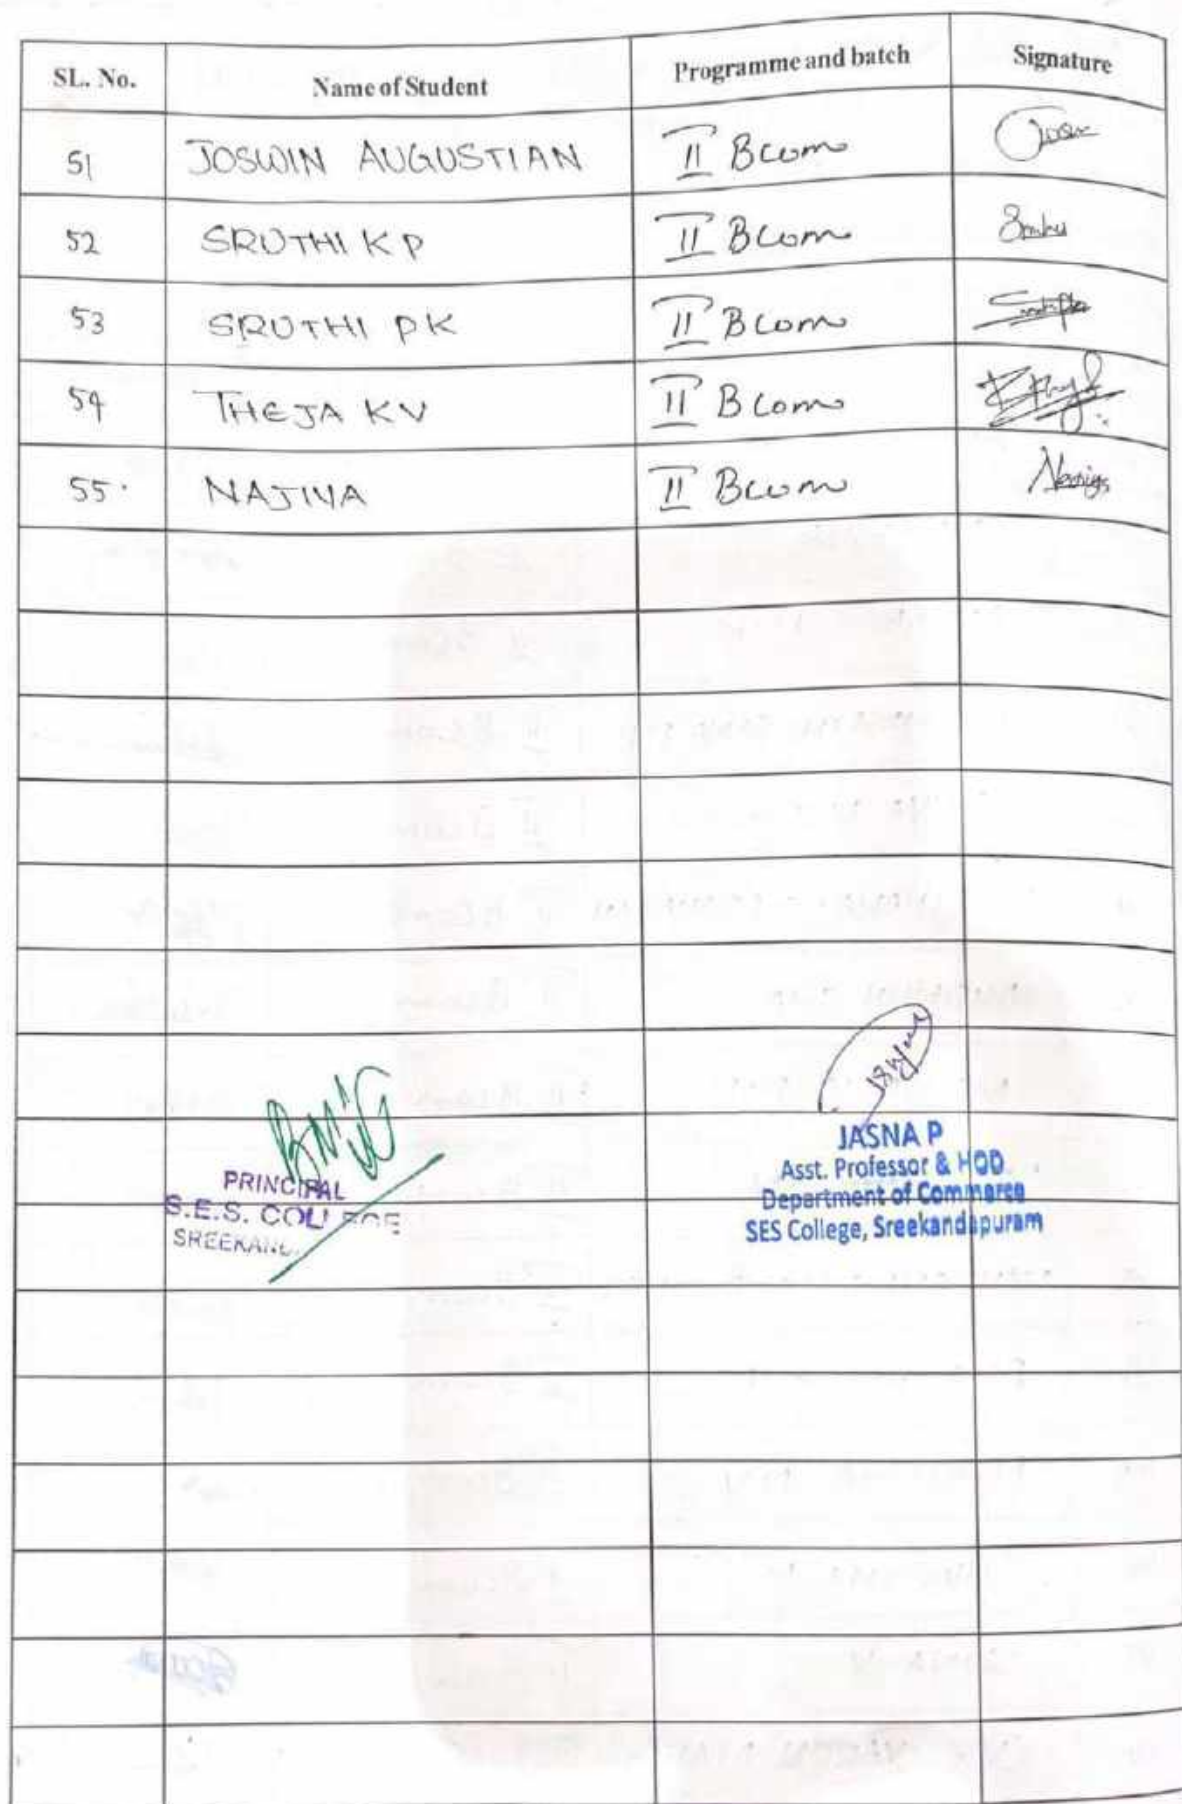 SL. No. Name of Student Programme and batch Signature
51 JOSWIN AUGUSTIAN II BCom
52 SRUTHI K P II BCom
53 SRUTHI PK II BCom
54 THEJA KV II BCom
55. NAJIYA II BCom
PRINCIPAL
S.E.S. COLLEGE
JASNA P
Asst. Professor & HOD
Department of Commerce
SES College, Sreekandapuram